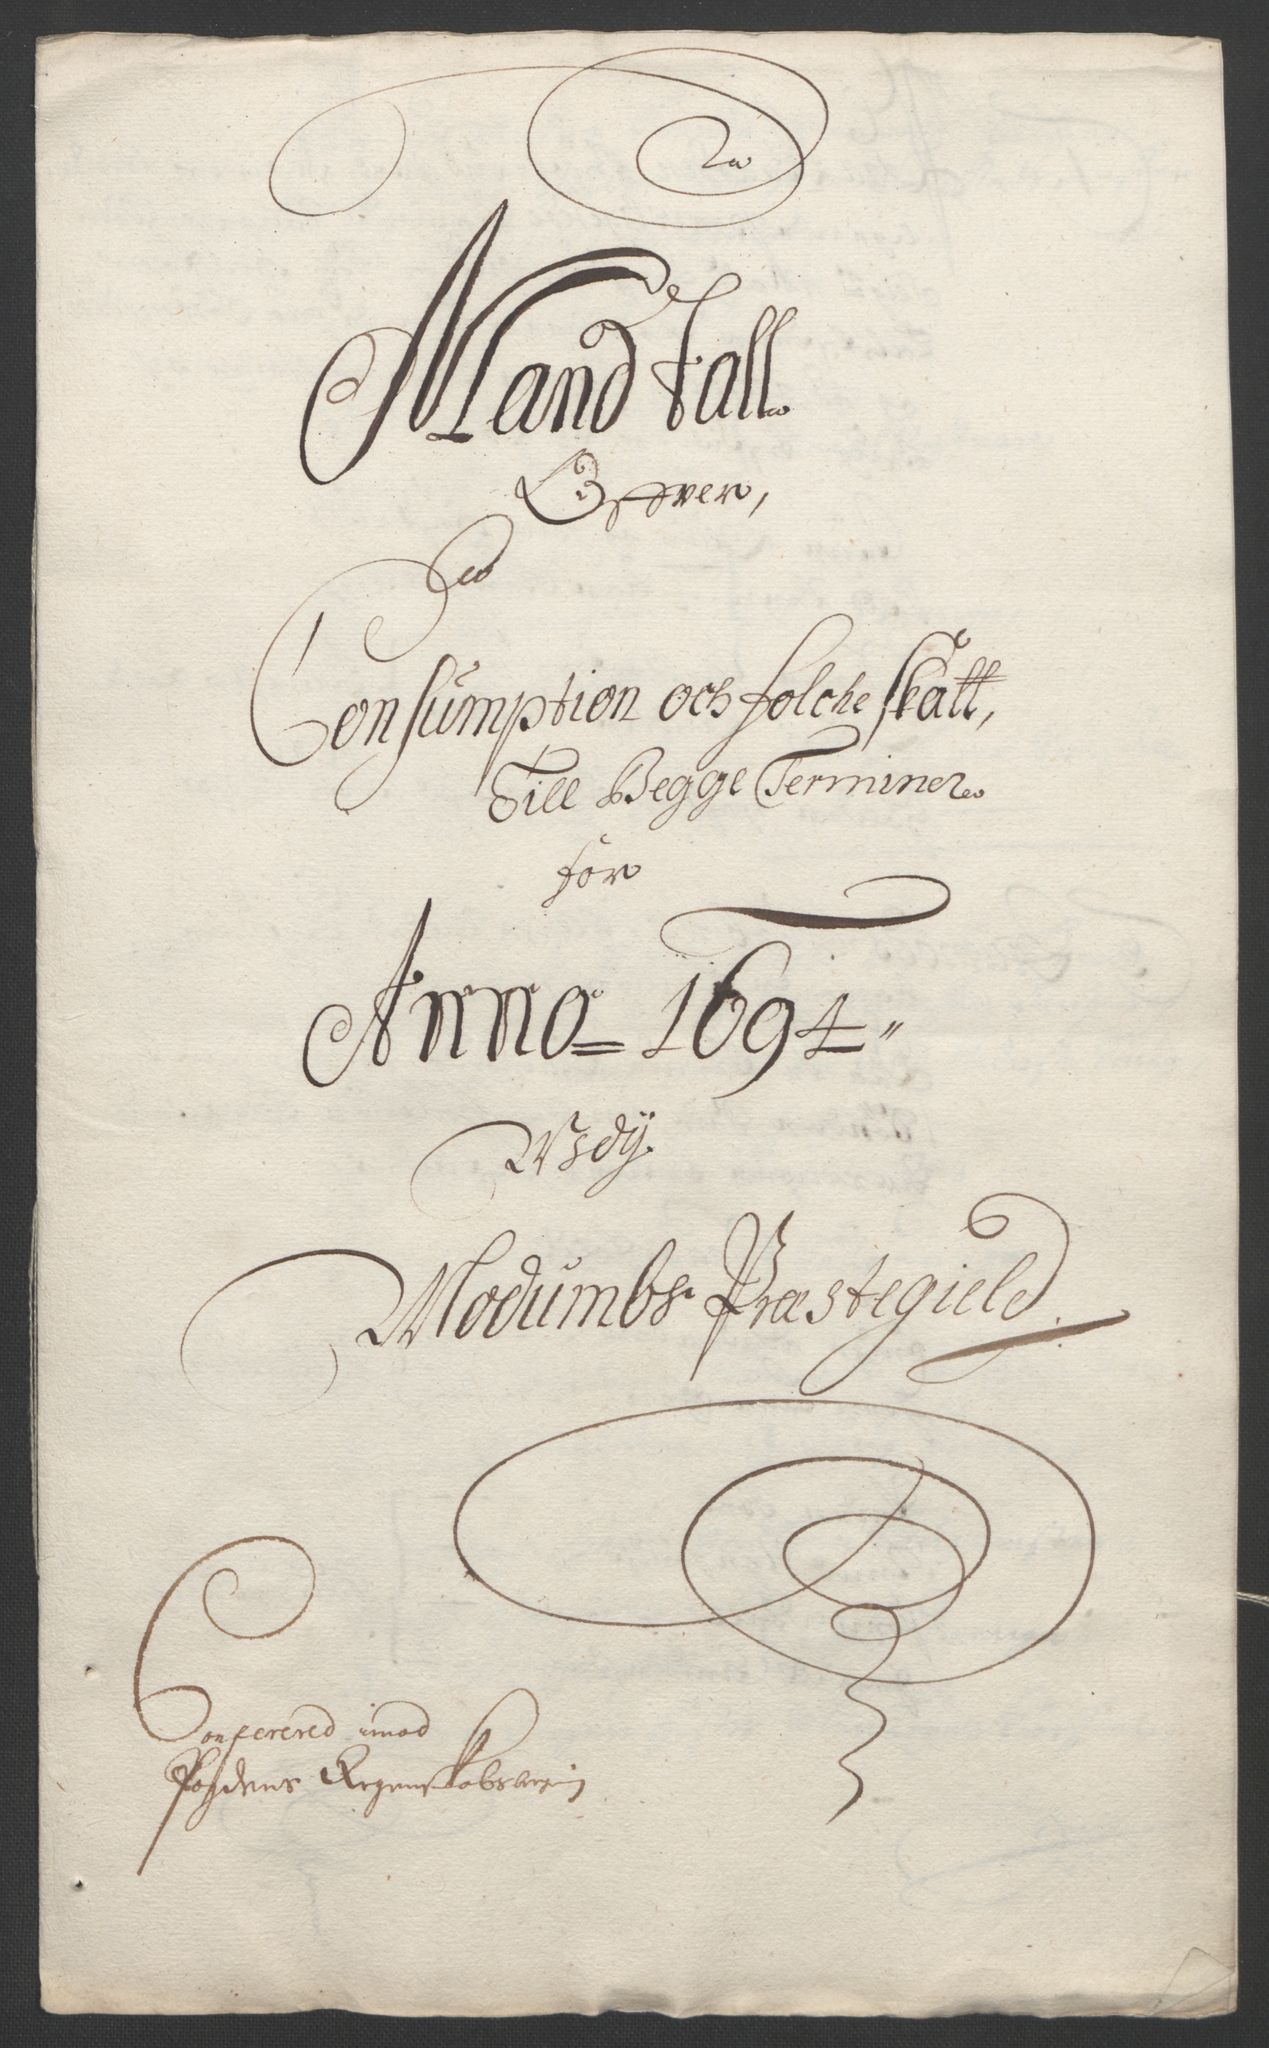 Mand Tall
Ofver,
Consumption och folche skatt,
Till Begge Terminer
för
Anno 1694
Udj
Modumbs Præstegield.
Conferered imod
Fogdens Regenskabs